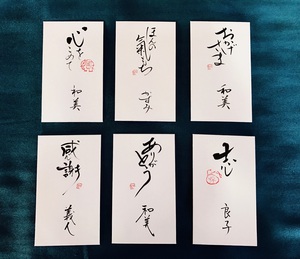 心を
こめて
和美
ほんの
気もち
かずみ
おかげ
さま
和美
感謝
義人
ありが
とう
和美
良子